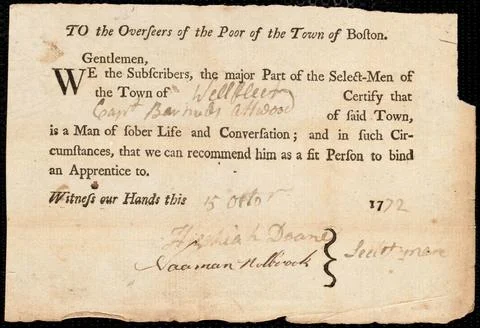 TO the Overſeers of the Poor of the Town of Boston.
Gentlemen,
WE the Subſcribers, the major Part of the Select-Men of
the Town of Wellfleet Certify that
Capt Attwood of ſaid Town,
is a Man of ſober Life and Converſation; and in ſuch Cir-
cumſtances, that we can recommend him as a fit Perſon to bind
an Apprentice to.
Witneſs our Hands this 15 Octor 1772
Doane
Naaman Holbrook
Select men